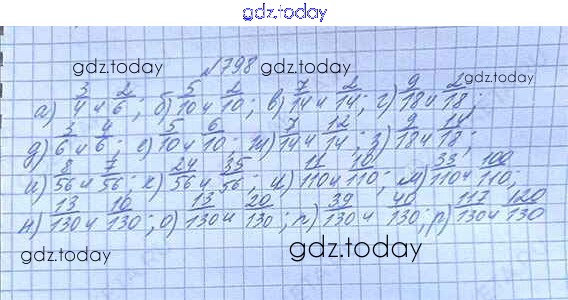 gdz.today
gdz.today №798 gdz.today
а) 3/4 и 2/6, б) 5/10 и 2/10; в) 7/14 и 2/14; г) 9/18 и 2/18;
д) 3/6 и 4/6; е) 5/10 и 6/10; ж) 7/14 и 12/14; з) 9/18 и 14/18;
и) 8/56 и 7/56; к) 24/56 и 35/56; л) 11/110 и 10/110; м) 33/110 и 100/110;
н) 13/130 и 10/130; о) 13/130 и 20/130; п) 39/130 и 40/130; р) 117/130 и 120/130
gdz.today gdz.today